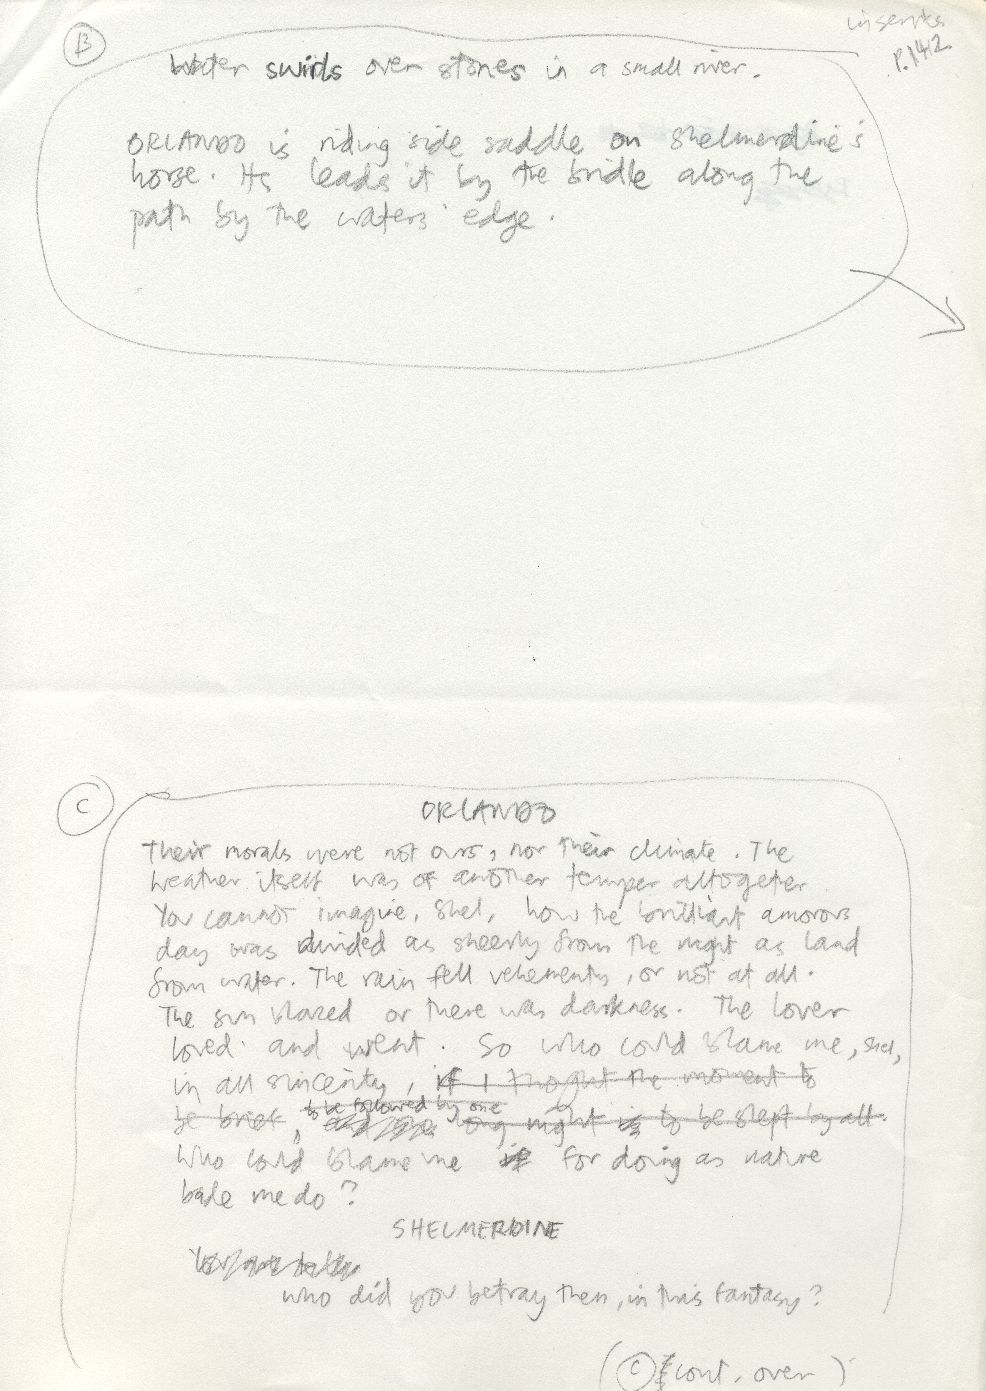 inserts
P. 142
B
Water swirls over stones in a small river.
ORLANDO is riding side saddle on Shelmerdine's
horse. He leads it by the bridle along the
path by the waters' edge.
C
ORLANDO
Their morals were not ours, nor their climate. The
weather itself was of another temper altogether
You cannot imagine, Shel, how the brilliant amorous
day was divided as sheerly from the night as land
from water. The rain fell vehemently, or not at all.
The sun blazed or there was darkness. The lover
loved and went. So who could blame me, Shel,
in all sincerity, if I thought the moment to
to be followed by one
be brief, long night is to be slept by all.
Who could blame me if for doing as nature
bade me do?
SHELMERDINE
who did you betray then, in this fantasy?
(C cont. over)